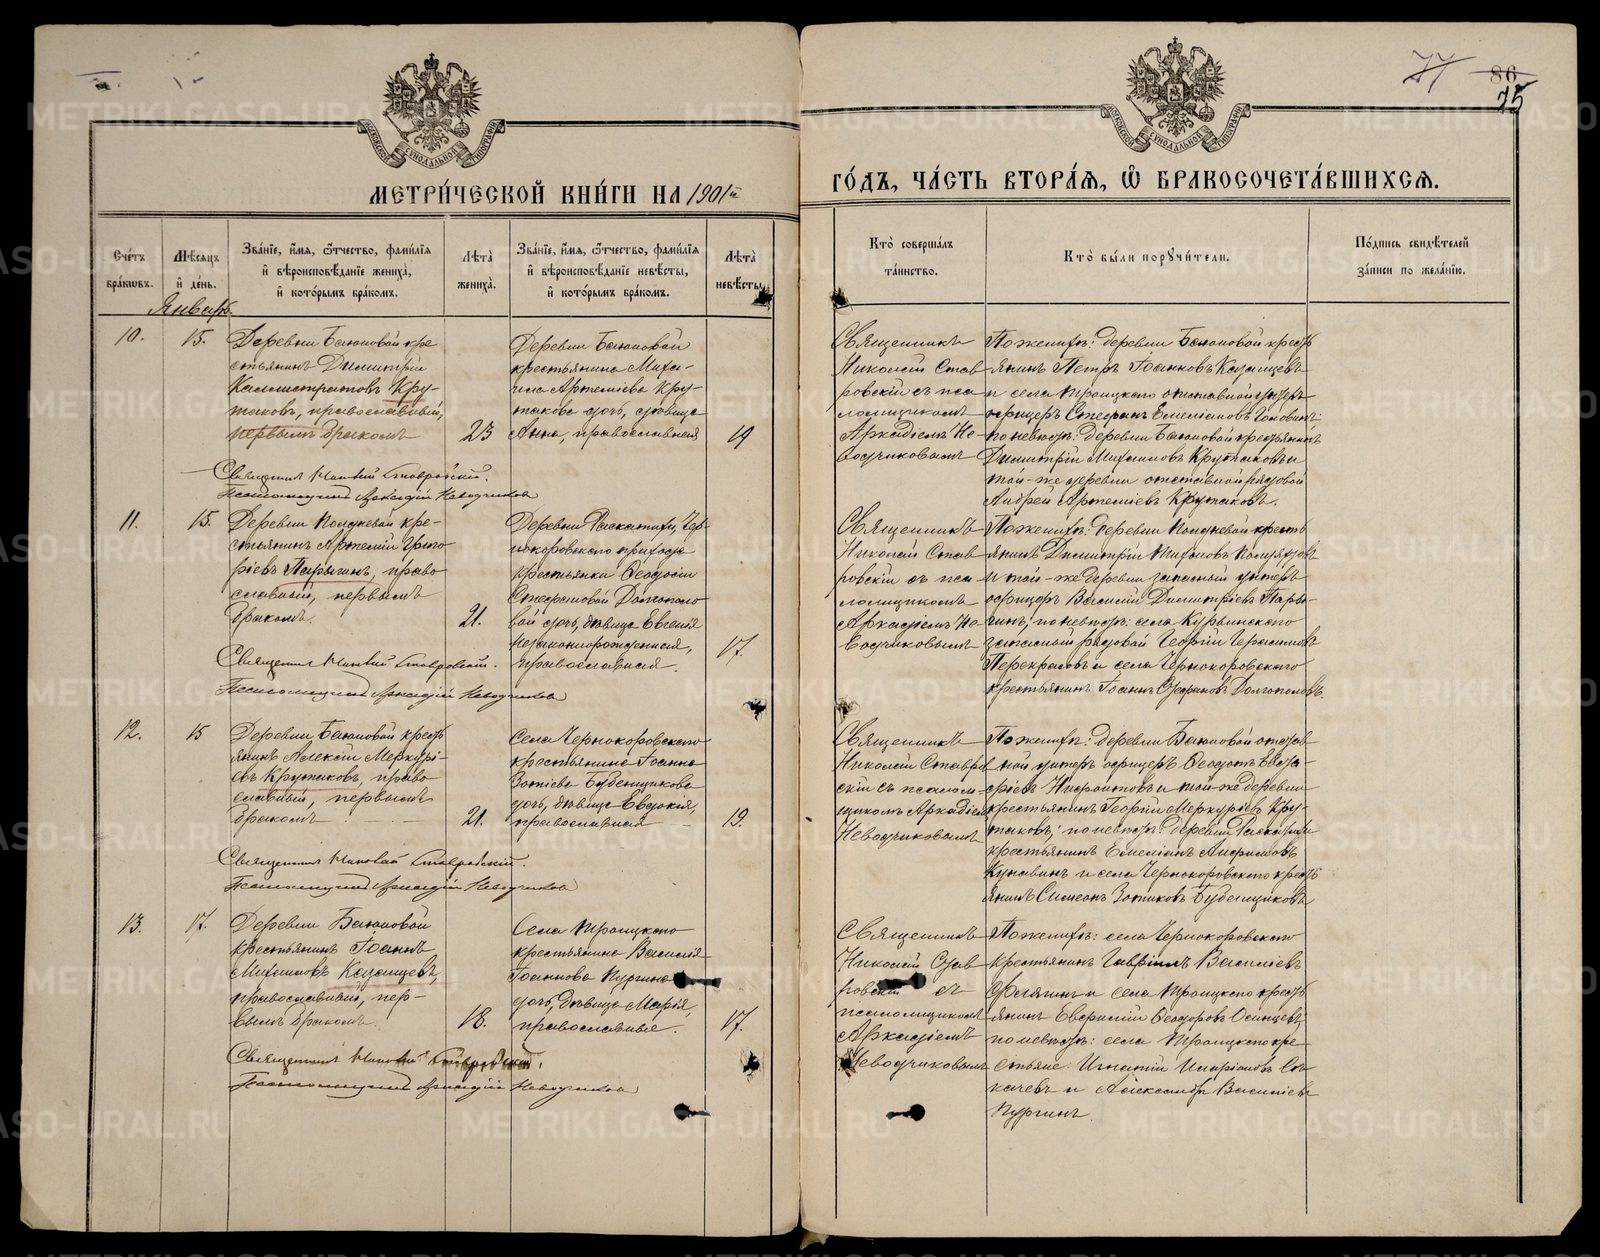 77
86
75
МЕТРИ́ЧЕСКОЙ КНИ́ГИ НА 1901й
ГО́ДЪ, ЧА́СТЬ ВТОРА́Я, Ѡ҆ БРАКОСОЧЕТА́ВШИХСЯ.
Сче́тъ бра́кѡвъ.
Мѣ́сяцъ и҆ де́нь.
Зва́нїе, и҆́мя, ѻ҆́тчество, фами́лїя
и҆ вѣроисповѣ́данїе жениха̀,
и҆ кото́рымъ бра́комъ.
Лѣ́та жениха̀.
Зва́нїе, и҆́мя, ѻ҆́тчество, фами́лїя
и҆ вѣроисповѣ́данїе невѣ́сты,
и҆ кото́рымъ бра́комъ.
Лѣ́та невѣ́сты.
Кто̀ соверша́лъ
та́инство.
Кто̀ бы́ли порꙋчи́тели.
По́дпись свидѣ́телей
за́писи по жела́нїю.
Январь.
10.
15.
Деревни Баюновой кре
стьянинъ Димитрій
Каллистратовъ Кру-
таковъ, православный,
первымъ бракомъ
23
Деревни Баюновой
крестьянина Миха-
ила Артеміева Кру-
такова дочь, дѣвица
Анна, православная
19
Священникъ
Николай Став
ровскій съ пса
ломщикомъ
Аркадіемъ Не-
водчиковымъ
По женихѣ: деревни Баюновой кресть
янинъ Петръ Іоанновъ Казанцевъ
и села Троицкаго отставной унтеръ
офицеръ Стефанъ Емеліановъ
по невѣстѣ: деревни Баюновой крестьянинъ
Димитрій Михаиловъ Крутаковъ и
той-же деревни отставной рядовой
Андрей Артеміевъ Крутаковъ.
Священникъ Николай Ставровскій.
Псаломщикъ Аркадій Неводчиковъ
11.
15.
Деревни кре-
стьянинъ Артемій Григо
ріевъ Парыгинъ, право
славный, первымъ
бракомъ.
21.
Деревни Раскатихи, Чер
нокоровскаго прихода
крестьянки Ѳеодосіи
Стефановой Долгополо
вой дочь, дѣвица Евгенія
незаконнорожденная,
православная.
17.
Священникъ
Николай Став
ровскій съ пса-
ломщикомъ
Аркадіемъ Не
водчиковымъ
По женихѣ: деревни кресть
янинъ Димитрій
и той-же деревни запасный унтеръ
офицеръ Василій Димитріевъ Пары-
гинъ; по невѣстѣ: села Курьинскаго
запасный рядовой Георгій Герасимовъ
Перекрасовъ и села Чернокоровскаго
крестьянинъ Іоаннъ Долгополовъ.
Священникъ Николай Ставровскій.
Псаломщикъ Аркадій Неводчиковъ
12.
15
Деревни Баюновой кресть
янинъ Алексій Меркурі-
евъ Крутаковъ, право
славный, первымъ
бракомъ
21.
Села Чернокоровскаго
крестьянина Іоанна
Зотіева Буденщикова
дочь, дѣвица Евдокія,
православная
19.
Священникъ
Николай Ставров
скій съ псалом-
щикомъ Аркадіемъ
Неводчиковымъ
По женихѣ: деревни Баюновой отстав
ной унтеръ офицеръ Ѳеодотъ
и той же деревни
крестьянинъ Георгій Меркуріевъ Кру-
таковъ; по невѣстѣ: деревни Раскатихи
крестьянинъ Емеліанъ
Кунавинъ и села Чернокоровскаго кресть
янинъ Симеонъ Зотиковъ Буденщиковъ
Священникъ Николай Ставровскій.
Псаломщикъ Аркадій Неводчиковъ
13.
17.
Деревни Баюновой
крестьянинъ Іоаннъ
Михаиловъ Казанцевъ,
православный, пер-
вымъ бракомъ.
18.
Села Троицкаго
крестьянина Василія
Іоаннова Пургина
дочь, дѣвица Марія,
православная.
17.
Священникъ
Николай Став
ровскій съ
псаломщикомъ
Аркадіемъ
Неводчиковымъ
По женихѣ: села Чернокоровскаго
крестьянинъ Гавріилъ Василіевъ
и села Троицкаго кресть
янинъ Евфимій Ѳеодоровъ Осинцевъ;
по невѣстѣ: села Троицкаго кре
стьяне: Игнатій Иларіоновъ
и Александръ Василіевъ
Пургинъ.
Священникъ Николай Ставровскій.
Псаломщикъ Аркадій Неводчиковъ
METRIKI.GASO-URAL.RU